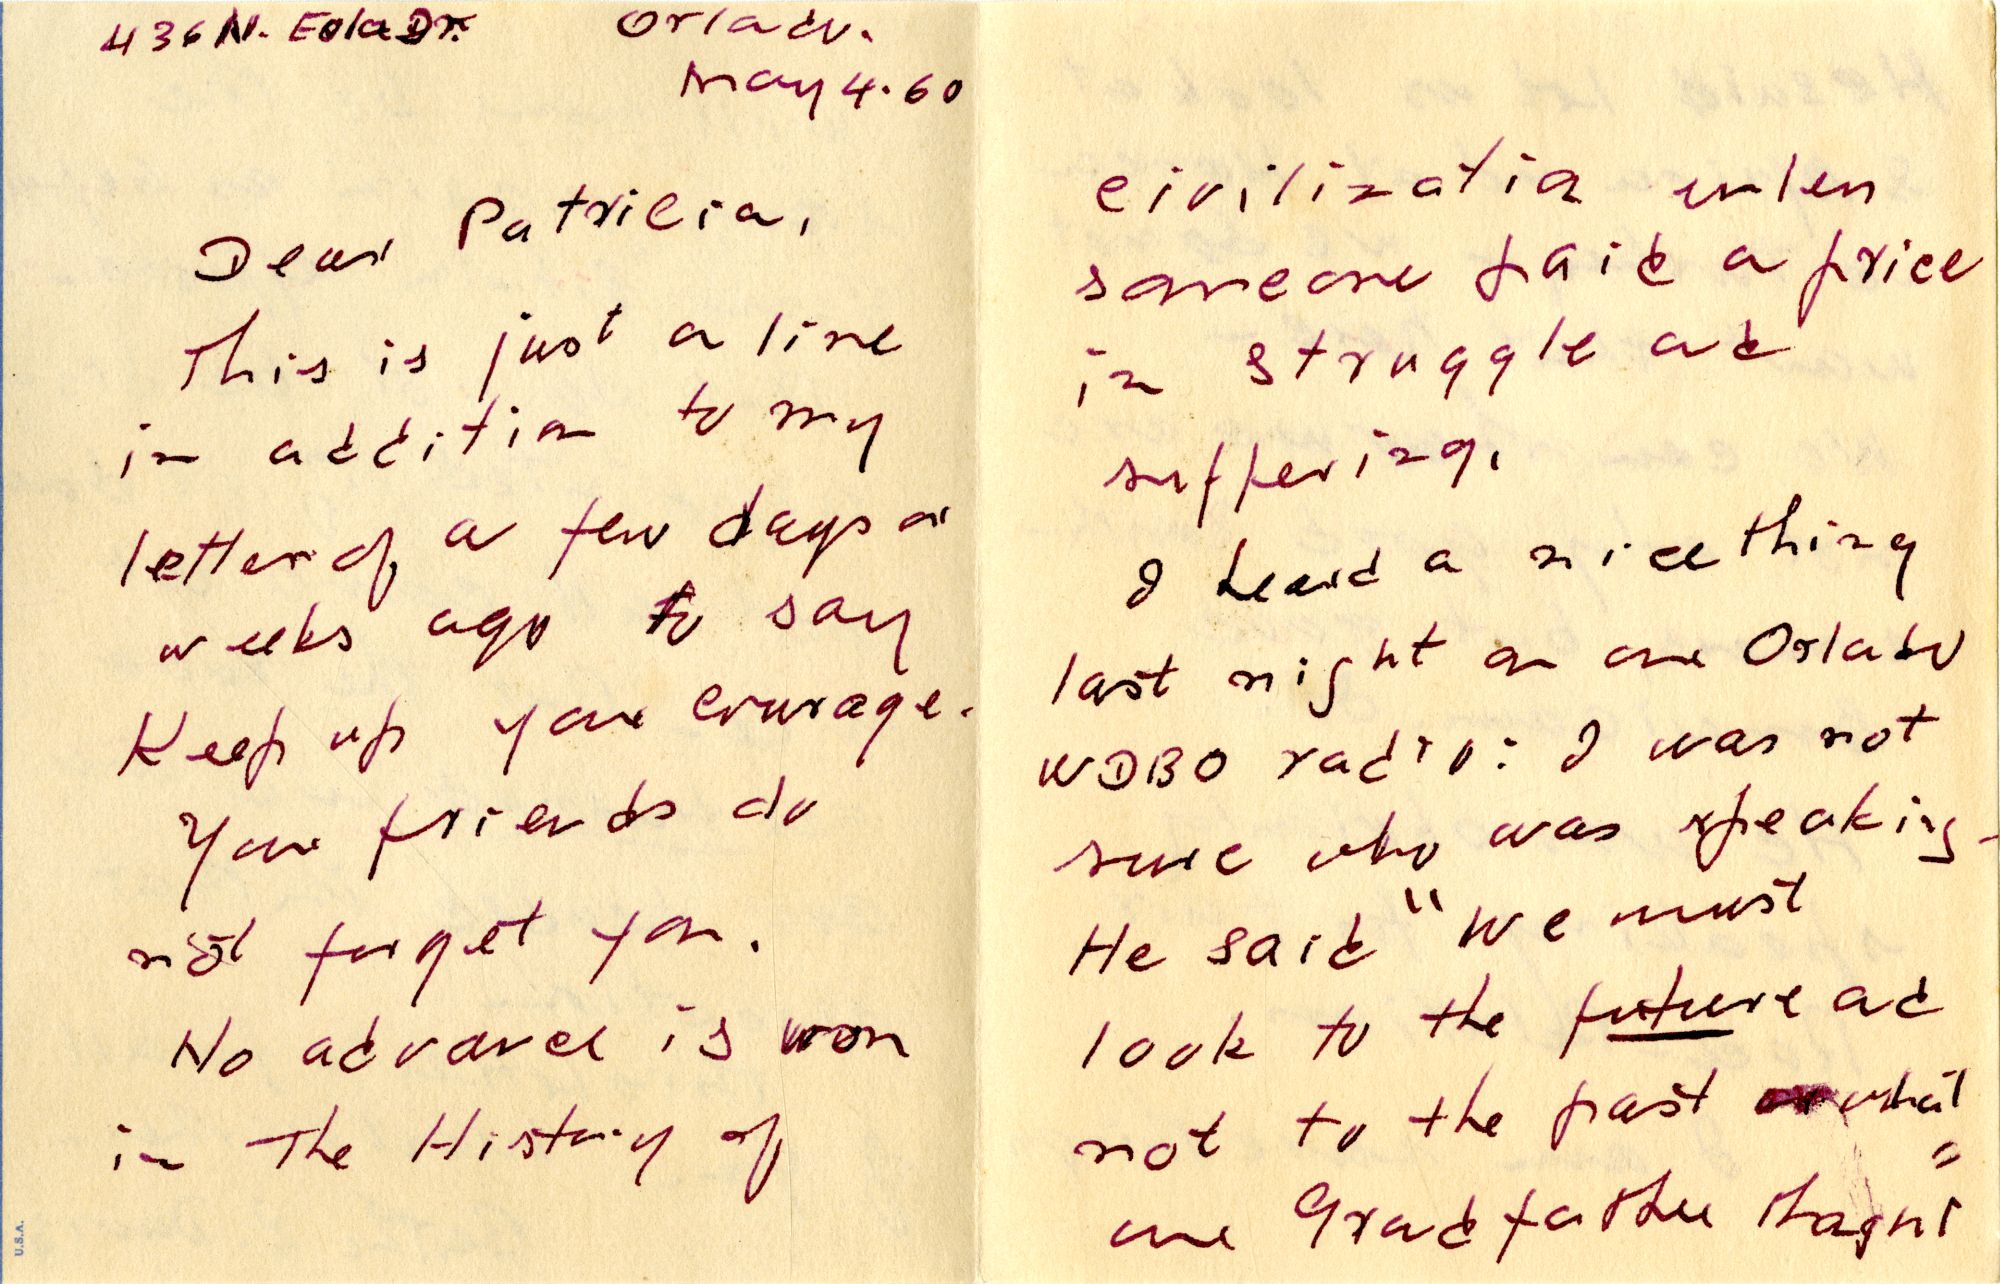 436 N. Eola Dr. Orlando.
May 4. 60
Dear Patricia,
This is just a line
in addition to my
letter of a few days or
weeks ago to say
Keep up your courage.
Your friends do
not forget you.
No advance is won
in the History of
civilization when
someone paid a price
in struggle and
suffering.
I heard a nice thing
last night on our Orlando
WDBO radio: I was not
sure who was speaking -
He said "We must
look to the future and
not to the past or what
our Grandfather thought"
U.S.A.